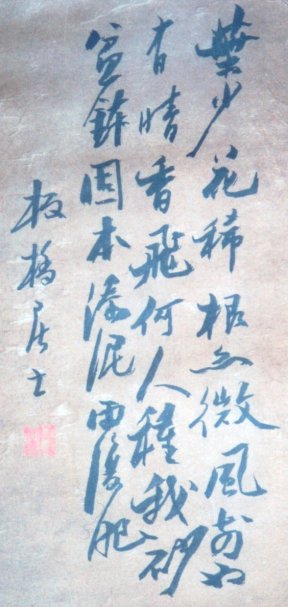 葉少花稀根亦微風前也
有晴香飛何人種我砂
盆鉢固本添泥雨後肥
板橋居士